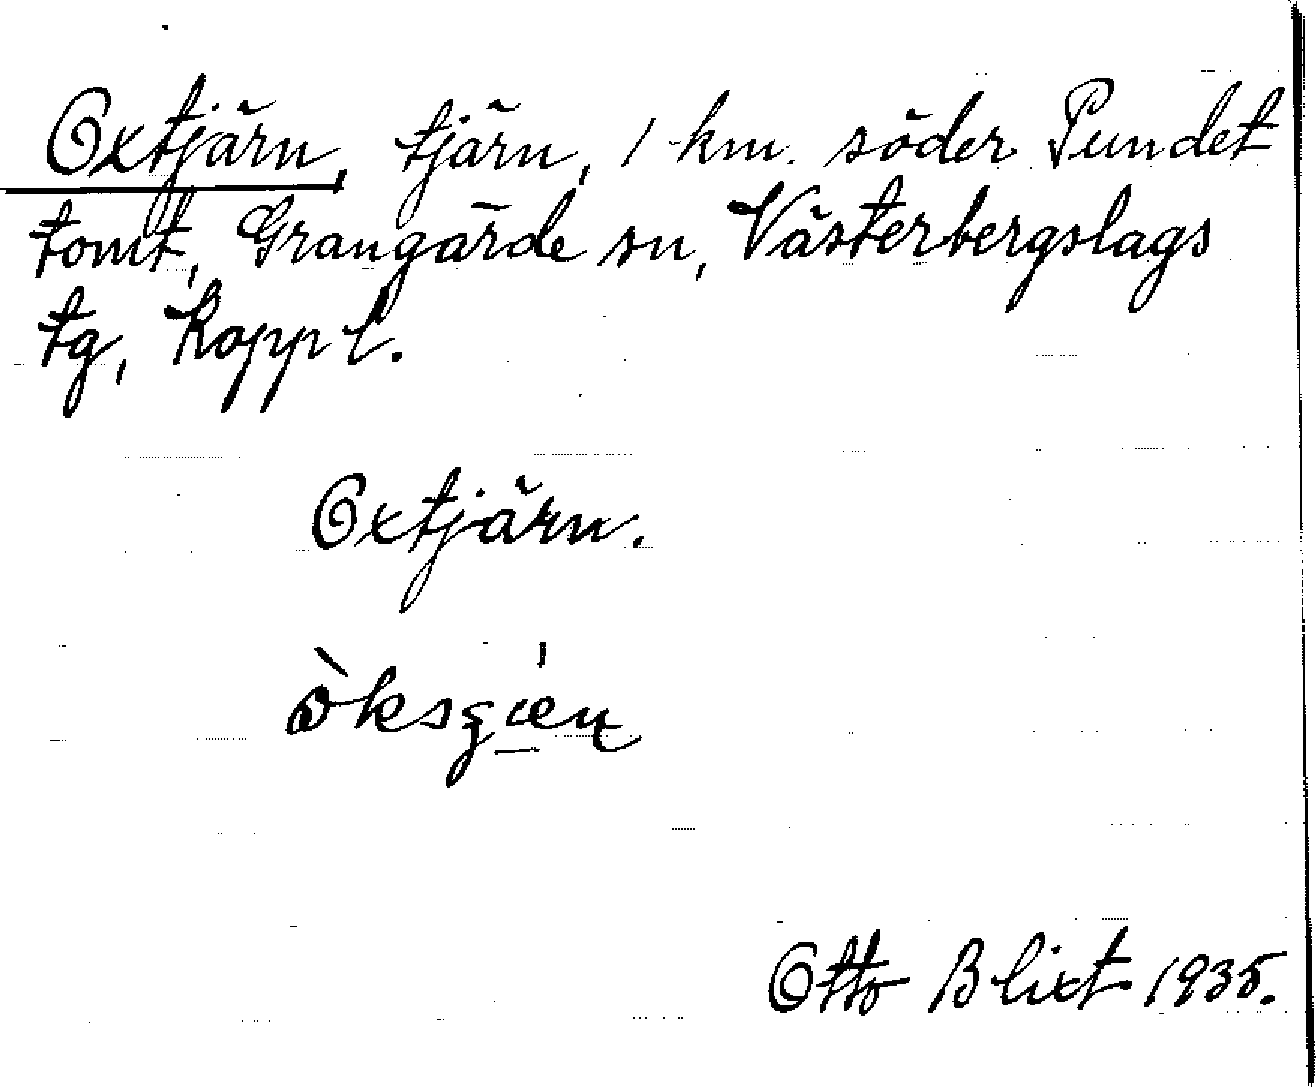 Oxtjärn, tjärn, 1 km. söder Pundet
tomt, Grangärde sn, Västerbergslags
tg, Kopp l.
Oxtjärn.
Otto Blixt 1935.